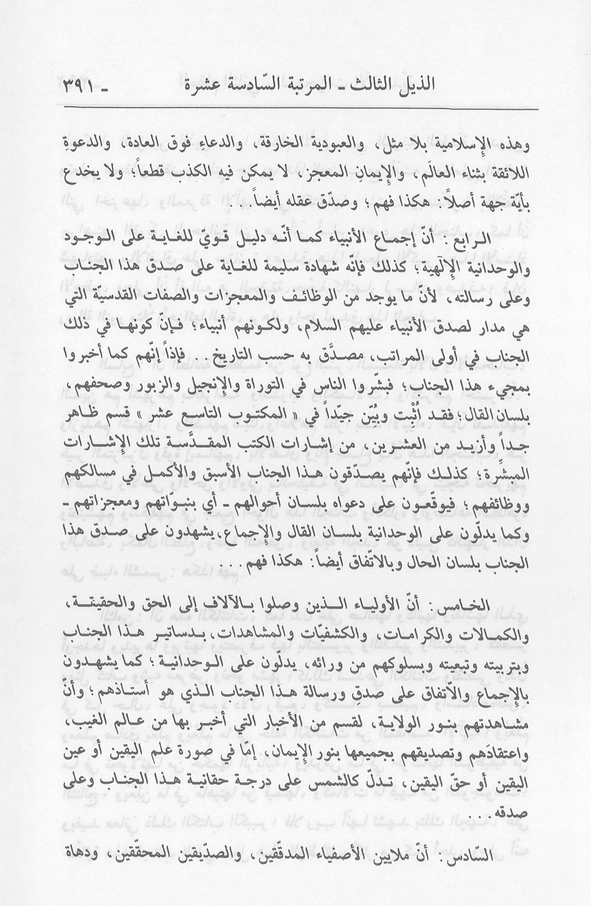 الذيل الثالث ـ المرتبة السّادسة عشرة ـ ٣٩١
وهذه الإسلامية بلا مثل، والعبودية الخارقة، والدعاءِ فوق العادة، والدعوةِ
اللائقة بثناء العالَم، والإيمانِ المعجز، لا يمكن فيه الكذب قطعاً؛ ولا يخدع
بأيّة جهة أصلاً: هكذا فهم؛ وصدّق عقله أيضاً...
الرابع: أنّ إجماع الأنبياء كما أنّه دليل قويّ للغاية على الوجود
والوحدانية الإلٓهية؛ كذلك فإنّه شهادة سليمة للغاية على صدق هذا الجناب
وعلى رسالته، لأنّ ما يوجد من الوظائف والمعجزات والصفات القدسيّة التي
هي مدار لصدق الأنبياء عليهم السلام، ولكونهم أنبياء؛ فإنّ كونها في ذلك
الجناب في أولى المراتب، مصدَّق به حسب التاريخ.. فإذاً إنّهم كما أخبروا
بمجيء هذا الجناب؛ فبشّروا الناس في التوراة والإنجيل والزبور وصحفهم،
بلسان القال؛ فقد أُثبِت وبُيّن جيّداً في «المكتوب التاسع عشر» قسم ظاهر
جداً وأزيد من العشرين، من إشارات الكتب المقدَّسة تلك الإشارات
المبشِّرة؛ كذلك فإنّهم يصدّقون هذا الجناب الأسبق والأكمل في مسالكهم
ووظائفهم؛ فيوقّعون على دعواه بلسان أحوالهم ـ أي بنبوّاتهم ومعجزاتهم ـ
وكما يدلّون على الوحدانية بلسان القال والإجماع، يشهدون على صدق هذا
الجناب بلسان الحال وبالاتّفاق أيضاً: هكذا فهم...
الخامس: أنّ الأولياء الذين وصلوا بالآلاف إلى الحق والحقيقة،
والكمالات والكرامات، والكشفيّات والمشاهدات، بدساتير هذا الجناب
وبتربيته وتبعيته وبسلوكهم من ورائه، يدلّون على الوحدانية؛ كما يشهدون
بالإجماع والاتّفاق على صدقِ ورسالة هذا الجناب الذي هو أستاذهم؛ وأنّ
مشاهدتهم بنور الولاية، لقسم من الأخبار التي أخبر بها من عالم الغيب،
واعتقادَهم وتصديقهم بجميعها بنور الإيمان، إمّا في صورة علم اليقين أو عين
اليقين أو حقّ اليقين، تدلّ كالشمس على درجة حقانية هذا الجناب وعلى
صدقه...
السّادس: أنّ ملايين الأصفياء المدقّقين، والصدّيقين المحقّقين، ودهاة